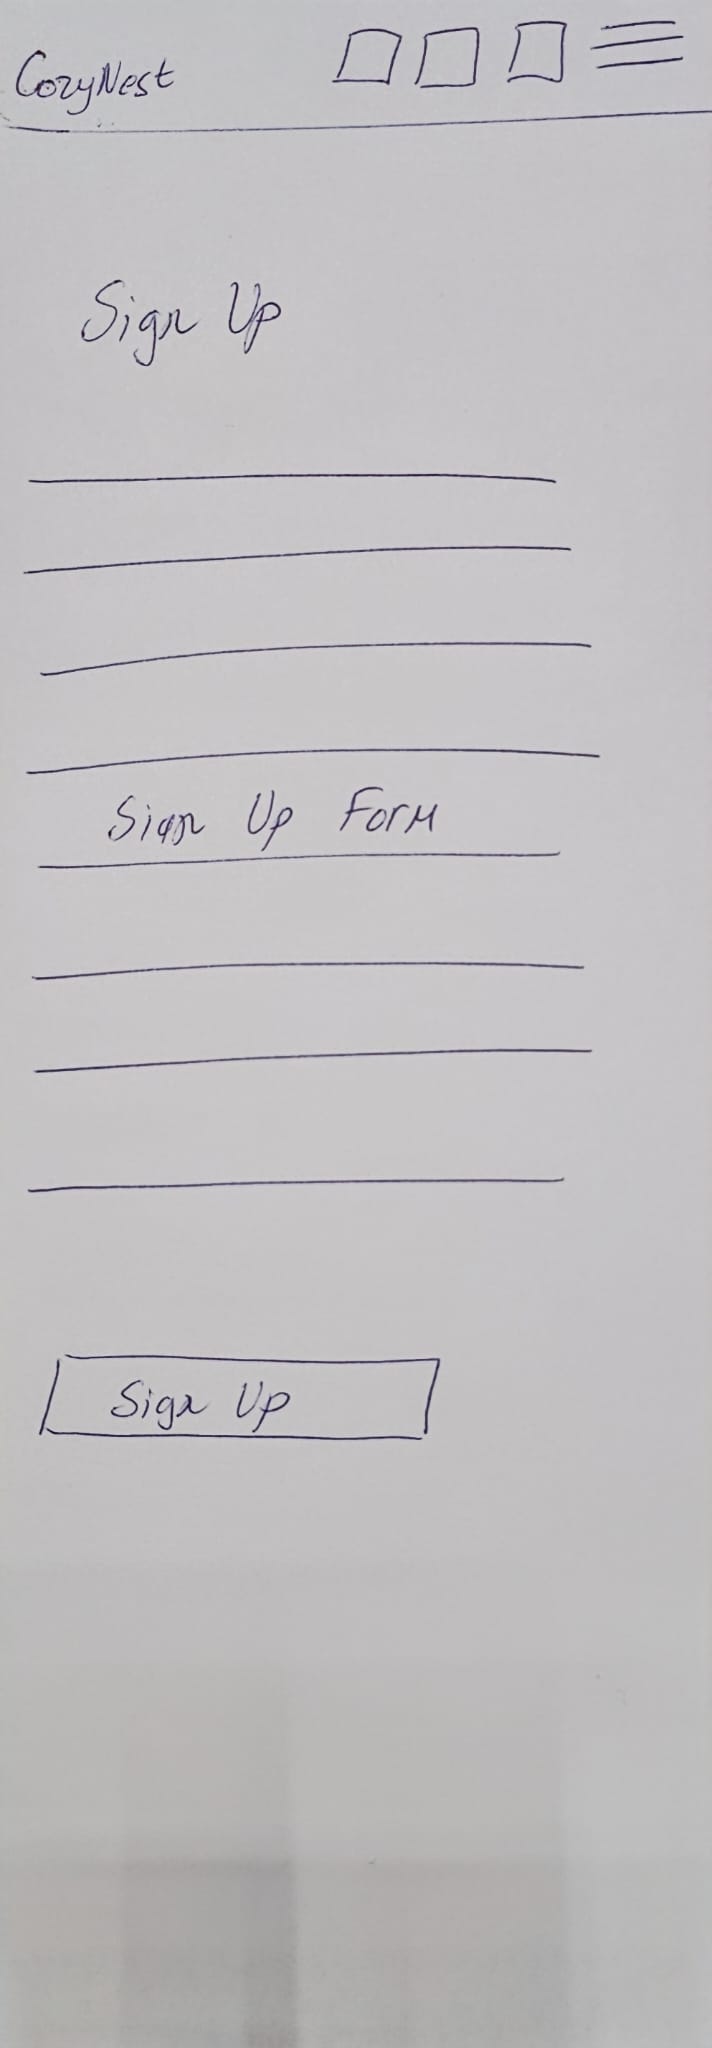 CozyNest
Sign Up
Sign Up Form
Sign Up